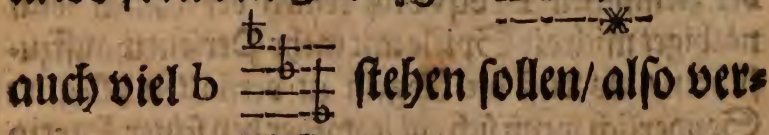 auch viel b ſtehen ſollen/ alſo ver⸗